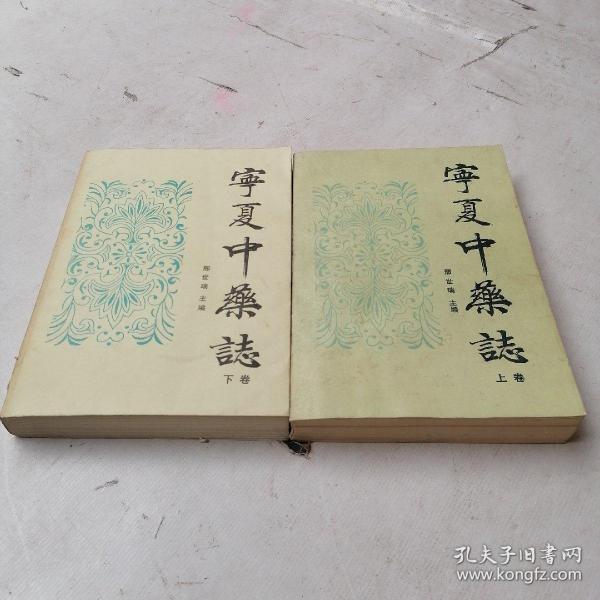 寧夏中藥誌
邢世瑞 主编
下卷
寧夏中藥誌
邢世瑞 主编
上卷
孔夫子旧书网
www.kongfz.com